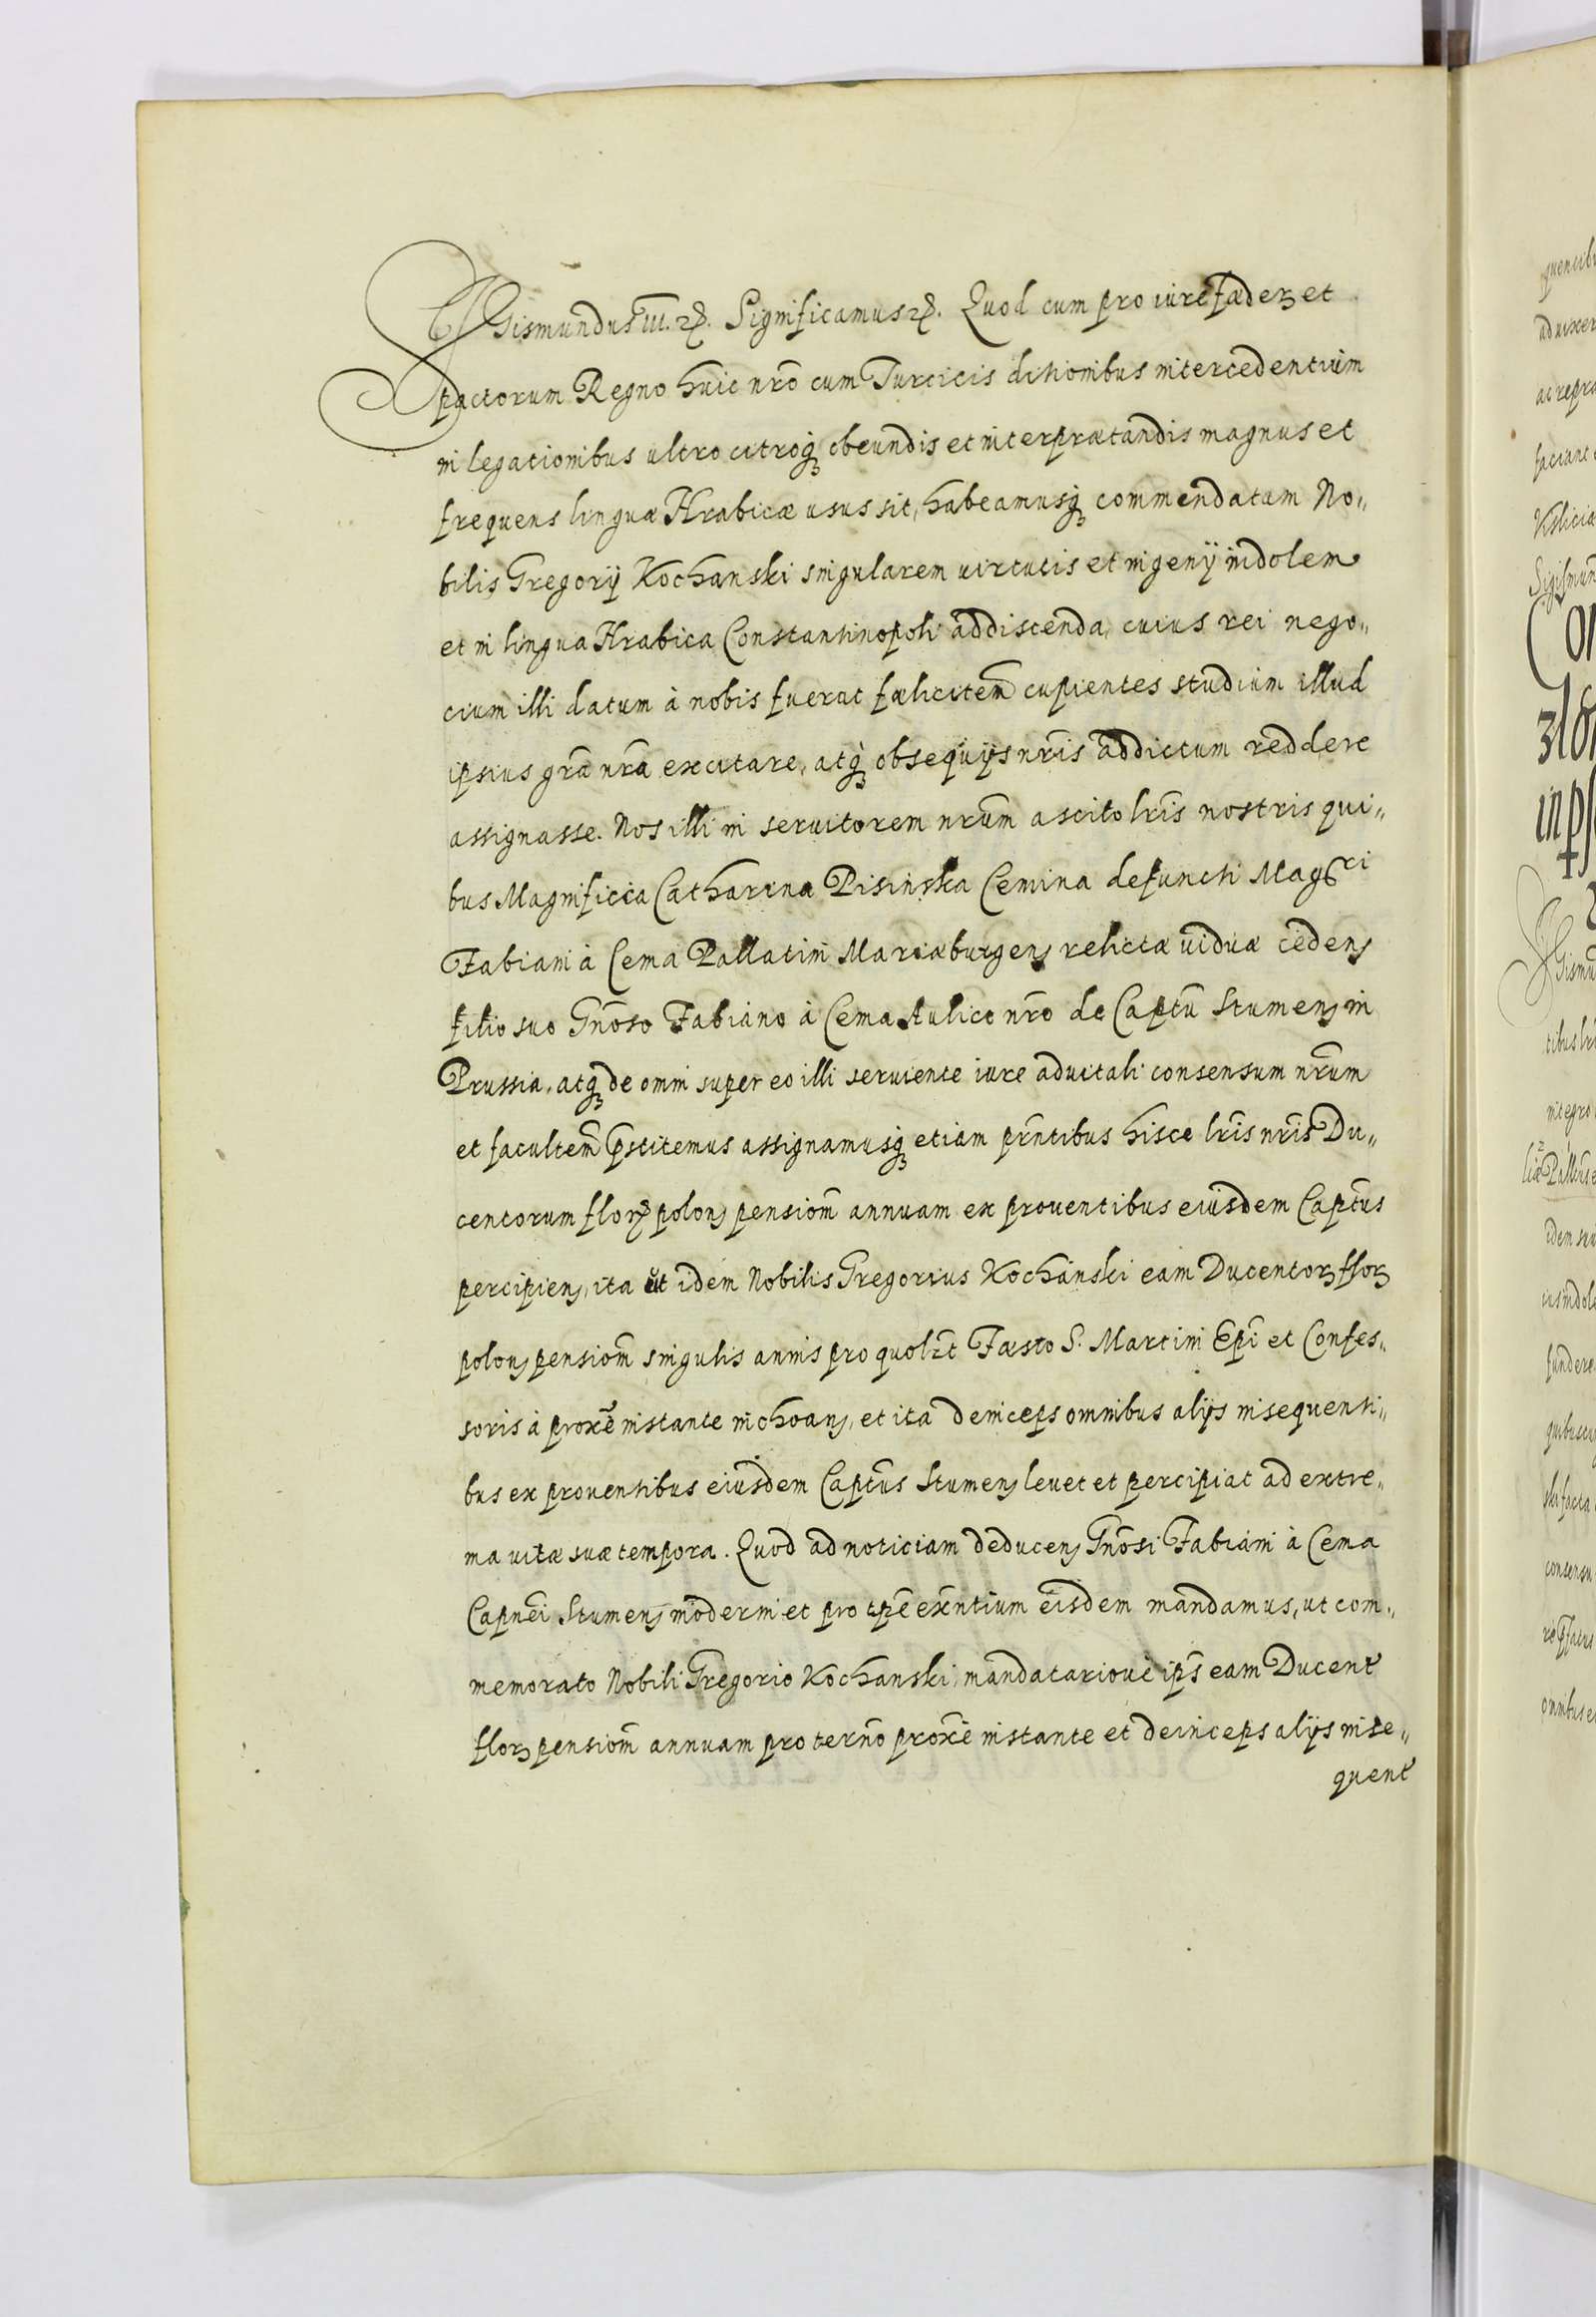 Sigismundus III. etc. Significamus etc. Quod cum pro iure fædeꝝ et
pactorum Regno huic nr̃o cum Turcicis ditionibus intercedentium
in legationibus ultro citroq̃ꝫ obeundis et interprætandis magnus et
frequens linguæ Arabicæ usus sit, habeamusq̃ꝫ commendatam No„
bilis Gregorij Kochanski singularem uirtutis et ingenij indolem
et in lingua Arabica Constantinopoli addiscenda, cuius rei nego„
cium illi datum à nobis fuerat fælicitem̃ cupientes studium illud
ipsius gr̃a nr̃a excitare, atq̃ꝫ obsequijs nr̃is addictum reddere
assignasse. Nos illi in seruitorem nr̃um ascito lr̃is nostris qui„
bus Magnificæ Catharinæ Pisinska Cemina defuncti Mag^ci
Fabiani à Cema Pallatini Mariæburgens relictæ uiduæ cedens
filio suo Gñoso Fabiano à Cema Aulico nr̃o de Captũ Stumens in
Prussia, atq̃ꝫ de omni super eo illi seruiente iure aduitali consensum nr̃um
et facultem̃ p̃stitemus assignamusq̃ꝫ etiam pr̃ntibus hisce lr̃is nr̃is Du„
centorum floꝝ polons pensiom̃ annuam ex prouentibus eiusdem Captũs
percipiens, ita ut idem Nobilis Gregorius Kochanski eam Ducentoꝝ floꝝ
polons pensiom̃ singulis annis pro quolꝫt Fæsto S. Martini Ep̃i et Confes„
soris à proxẽ instante inchoans, et ita deinceps omnibus alijs insequenti„
bus ex prouentibus eiusdem Captũs Stumens leuet et percipiat ad extre„
ma uitæ suæ tempora. Quod ad noticiam deducens Gñosi Fabiani à Cema
Capnẽi Stumens moderni et pro tp̃e exñtium eisdem mandamus, ut com„
memorato Nobili Gregorio Kochanski, mandatarioue ips̃ eam Ducent
floꝝ pensiom̃ annuam pro terño proxẽ instante et deinceps alijs inse„
quent